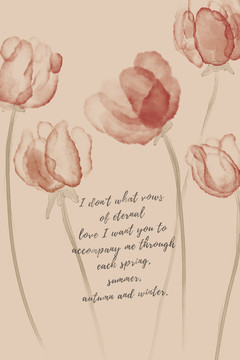 I don't what vows
of eternal
love I want you to
accompany me through
each spring,
summer,
autumn and winter.